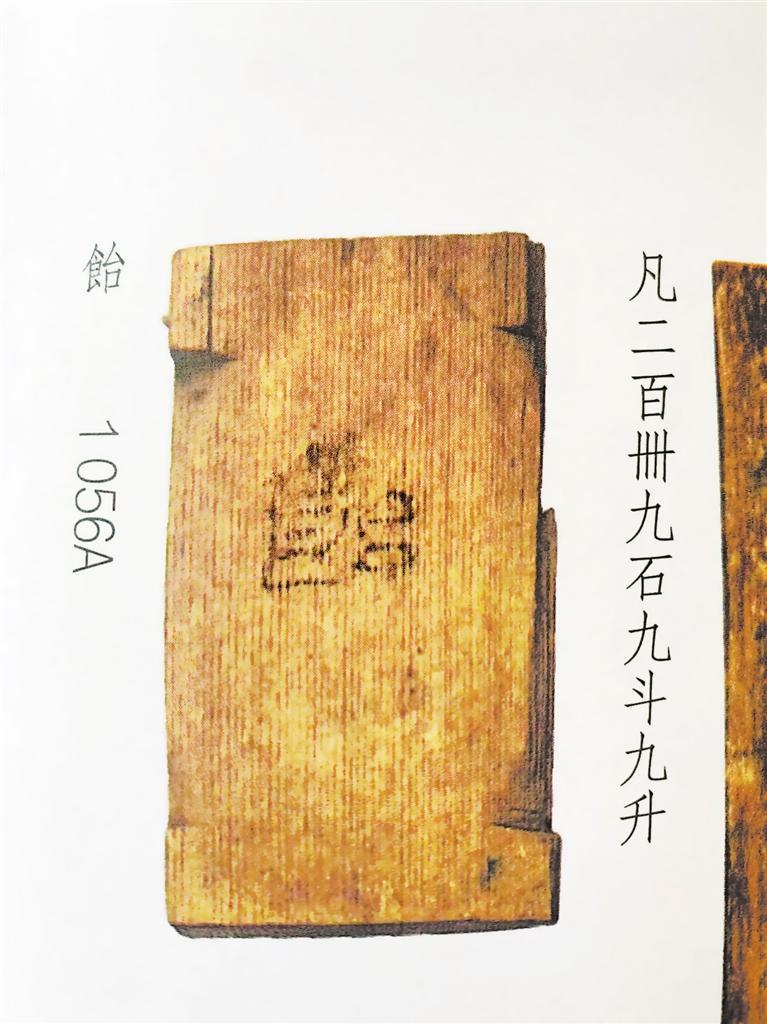 凡二百卌九石九斗九升
飴
飴 1056A